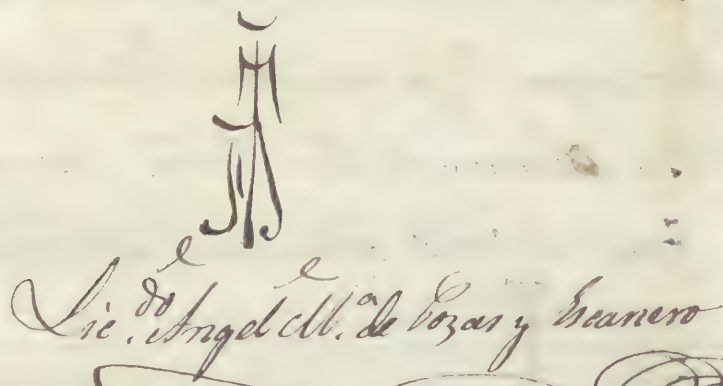 Lic.do Angel M.a de y Escanero